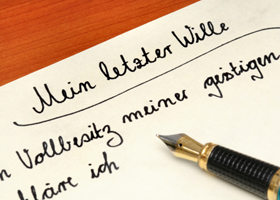 Mein letzter Wille
n Vollbesitz meiner geistigen
kläre ich